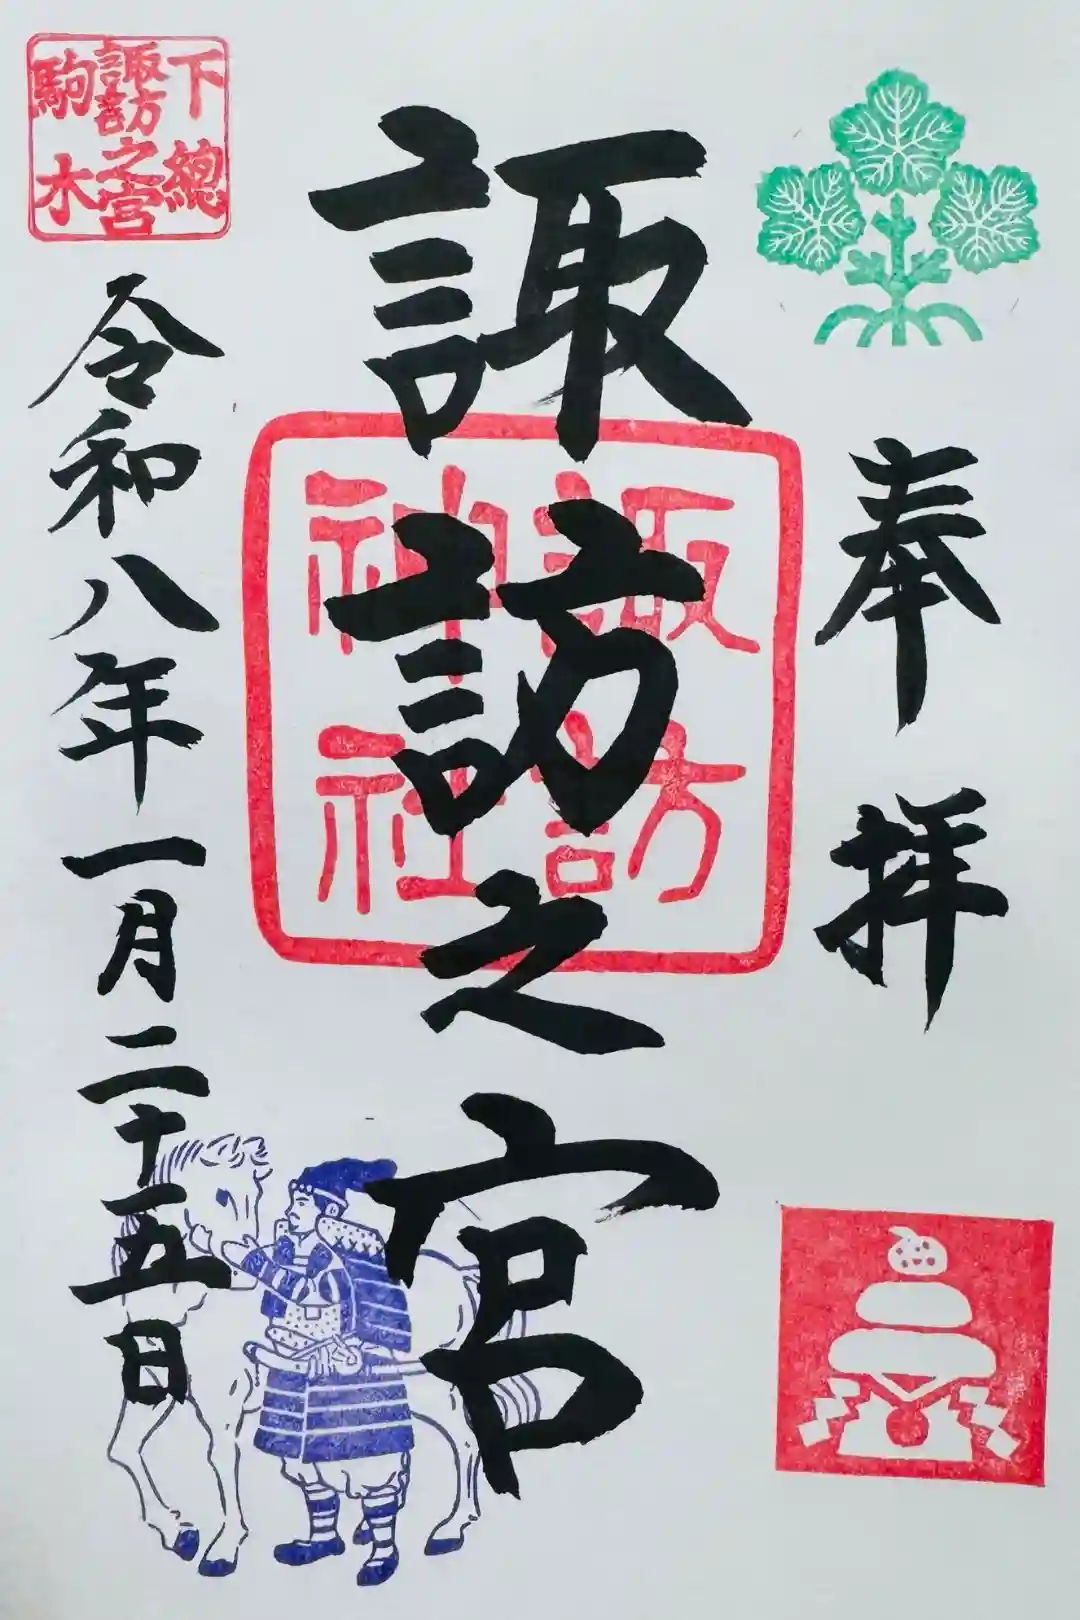 奉拝
諏訪之宮
諏訪
神社
下總
諏訪之宮
駒木
令和八年一月二十五日